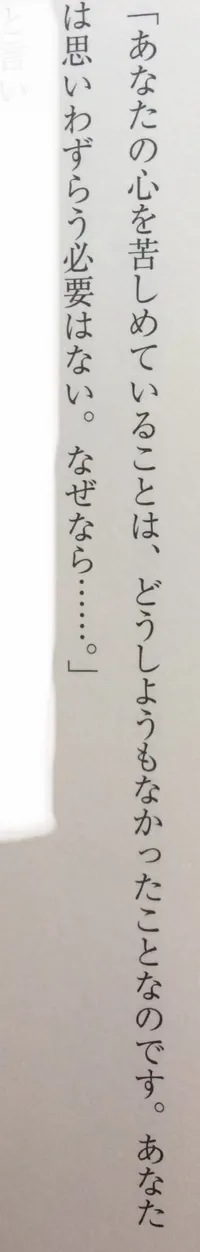 「あなたの心を苦しめていることは、どうしようもなかったことなのです。あなた
は思いわずらう必要はない。なぜなら……。」